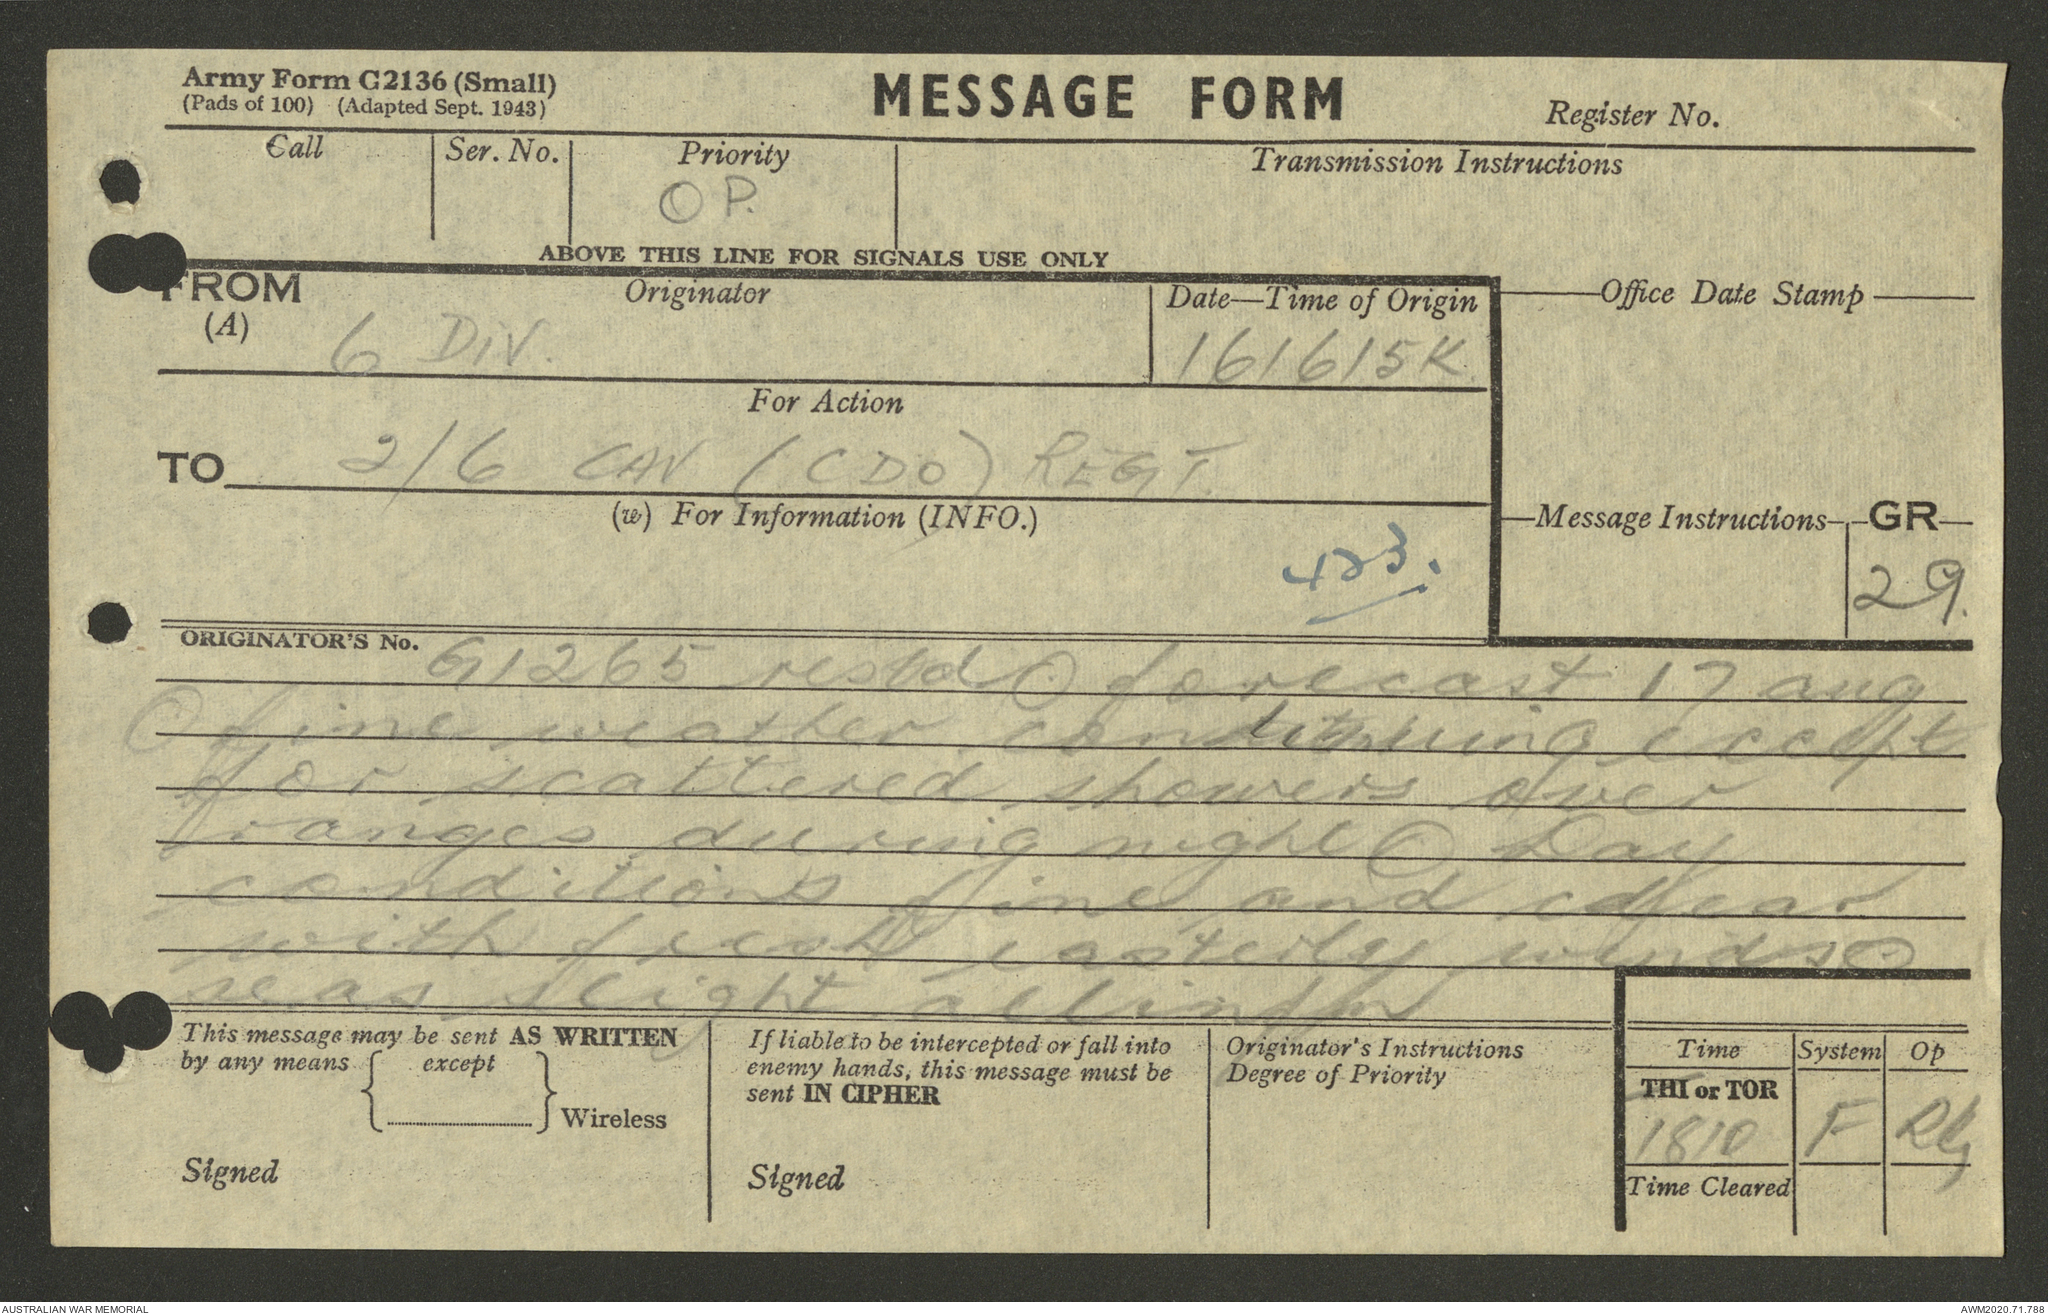 Army Form C2136 (Small)
(Pads of 100) (Adapted Sept. 1943)
MESSAGE FORM
Register No.
Call
Ser. No.
Priority
OP.
Transmission Instructions
ABOVE THIS LINE FOR SIGNALS USE ONLY
FROM
(A)
Originator
6 DIV.
Date—Time of Origin
161615K
Office Date Stamp
For Action
TO 2/6 CAV (CDO) REGT.
(w) For Information (INFO.)
423.
Message Instructions
GR
29.
ORIGINATOR'S No. G1265 restd O forecast 17 aug
O fine weather continuing except
for scattered showers over
ranges during night O Day
conditions fine and clear
with fresh easterly winds O
seas slight all infm
This message may be sent AS WRITTEN
by any means { except } Wireless
Signed
If liable to be intercepted or fall into
enemy hands, this message must be
sent IN CIPHER
Signed
Originator's Instructions
Degree of Priority
Time
System
Op
THI or TOR
1810
F
Time Cleared
AUSTRALIAN WAR MEMORIAL
AWM2020.71.788